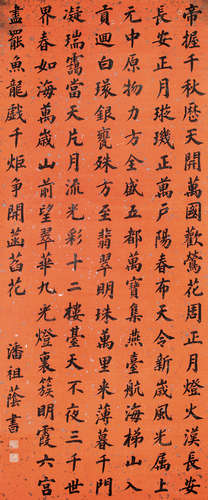 帝握千秋歷天開萬國歡鶯花周正月燈火漢長安
長安正月璇璣正萬戶陽春布天令新歲風光屬上
元中原物力方全盛五都萬寶集燕臺航海梯山入
貢迴白環銀甕殊方至翡翠明珠萬里來薄暮千門
凝瑞靄當天片月流光彩十二樓臺天不夜三千世
界春如海萬歲山前望翠華九光燈裏簇明霞六宮
盡罷魚龍戲千炬爭開菡萏花
潘祖蔭書